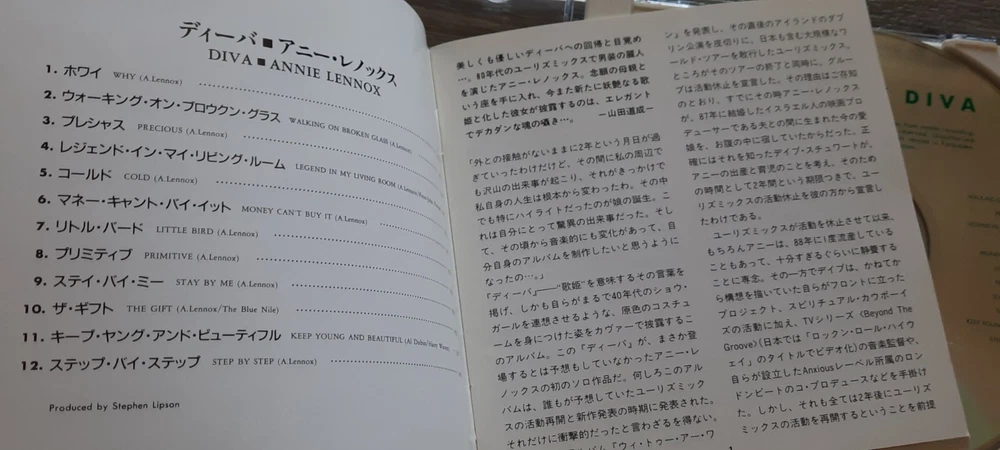 ディーバ■アニー・レノックス
DIVA■ANNIE LENNOX
1. ホワイ WHY (A.Lennox)
2. ウォーキング・オン・ブロウクン・グラス WALKING ON BROKEN GLASS (A.Lennox)
3. プレシャス PRECIOUS (A.Lennox)
4. レジェンド・イン・マイ・リビング・ルーム LEGEND IN MY LIVING ROOM
5. コールド COLD (A.Lennox)
6. マネー・キャント・バイ・イット MONEY CAN'T BUY IT (A.Lennox)
7. リトル・バード LITTLE BIRD (A.Lennox)
8. プリミティブ PRIMITIVE (A.Lennox)
9. ステイ・バイ・ミー STAY BY ME (A.Lennox)
10. ザ・ギフト THE GIFT (A.Lennox/The Blue Nile)
11. キープ・ヤング・アンド・ビューティフル KEEP YOUNG AND BEAUTIFUL
12. ステップ・バイ・ステップ STEP BY STEP (A.Lennox)
Produced by Stephen Lipson
美しくも優しいディーバへの回帰と目覚め
…。80年代のユーリズミックスで男装の麗人
を演じたアニー・レノックス。念願の母親と
いう座を手に入れ、今また新たに妖艶なる歌
姫と化した彼女が披露するのは、エレガント
でデカダンな魂の囁き…。
—山田道成—
「外との接触がないままに2年という月日が過
ぎていったわけだけど、その間に私の周辺で
も沢山の出来事が起こり、それがきっかけで
私自身の人生は根本から変わったわ。その中
でも特にハイライトだったのが娘の誕生。こ
れは自分にとって驚異の出来事だった。そし
て、その頃から音楽的にも変化があって、自
分自身のアルバムを制作したいと思うように
なったの…。」
『ディーバ』——"歌姫"を意味するその言葉を
掲げ、しかも自らがまるで40年代のショウ・
ガールを連想させるような、原色のコスチュ
ームを身につけた姿をカヴァーで披露するこ
のアルバム。この『ディーバ』が、まさか登
場するとは予想もしていなかったアニー・レ
ノックスの初のソロ作品だ。何しろこのアル
バムは、誰もが予想していたユーリズミック
スの活動再開と新作発表の時期に発表された。
それだけに衝撃的だったと言わざるを得ない。
ルバム『ウィ・トゥー・アー・ワ
ン』を発表し、その直後のアイランドのダブ
リン公演を皮切りに、日本も含む大規模なワ
ールド・ツアーを敢行したユーリズミックス。
ところがそのツアーの終了と同時に、グルー
プは活動休止を宣言した。その理由はご存知
のとおり、すでにその時アニー・レノックス
が、87年に結婚したイスラエル人の映画プロ
デューサーである夫との間に生まれた今の愛
娘を、お腹の中に宿していたからだった。正
確にはそれを知ったデイブ・スチュワートが、
アニーの出産と育児のことを考え、そのため
の時間として2年間という期限つきで、ユー
リズミックスの活動休止を彼の方から宣言し
たわけである。
ユーリズミックスが活動を休止させて以来、
もちろんアニーは、88年に1度流産している
こともあって、十分すぎるぐらいに静養する
ことに専念。その一方でデイブは、かねてか
ら構想を描いていた自らがフロントに立った
プロジェクト、スピリチュアル・カウボーイ
ズの活動に加え、TVシリーズ〈Beyond The
Groove〉(日本では「ロックン・ロール・ハイウ
ェイ」のタイトルでビデオ化)の音楽監督や、
自らが設立したAnxiousレーベル所属のロン
ドンビートのコ・プロデュースなどを手掛け
た。しかし、それも全ては2年後にユーリズ
ミックスの活動を再開するということを前提
1
DIVA